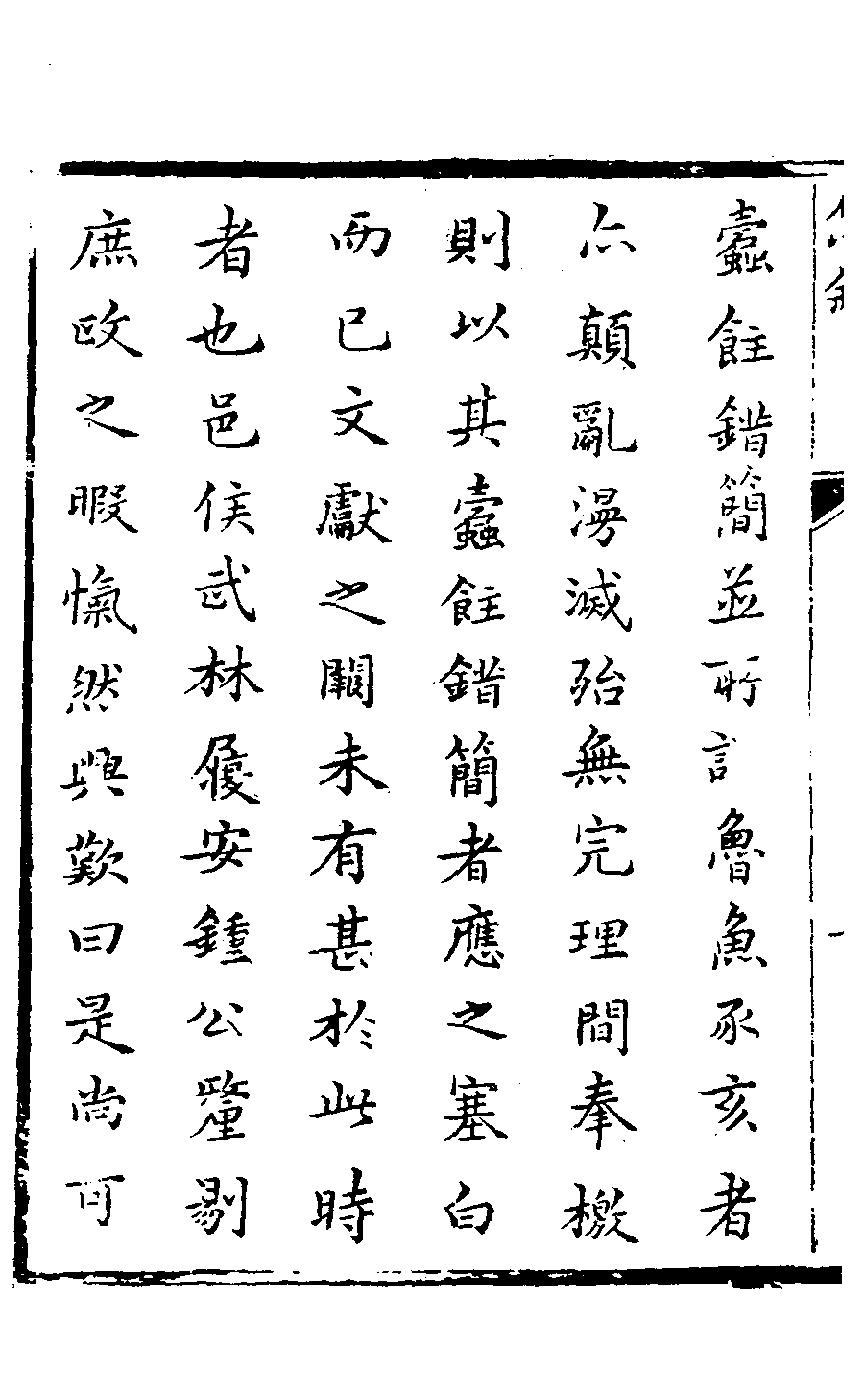 蠧飳錯簡並所魯魚豕亥者
亦顛亂漫滅殆無完理間奉檄
則以其蠧飳錯簡者應之塞白
而已文獻之闕未有甚於此時
者也邑侯武林履安鍾公釐剔
庶政之暇愾然興歎曰是尚可